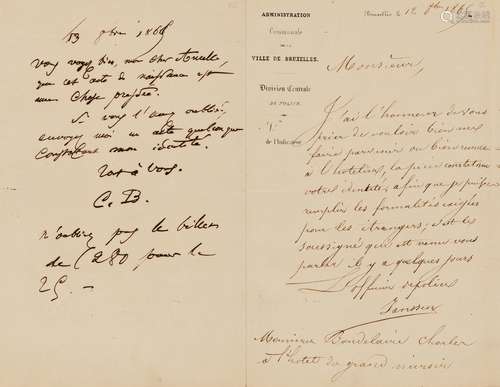 13 9bre 1865
vous voyez bien, mon cher Ancelle,
que cet acte de naissance est
une chose pressée.
Si vous l'avez oublié,
envoyez moi un acte quelconque
constatant mon identité.
Tout à vous.
C. B.
n'oubliez pas le billet
de (280 pour le
25. —
ADMINISTRATION
Communale
DE LA
VILLE DE BRUXELLES.
Division Centrale
DE POLICE.
de l'Indicateur
Bruxelles le 12 9bre 1865
Monsieur,
J'ai l'honneur de vous
prier de vouloir bien me
faire parvenir ou bien remettre
à l'hôtelier, la pièce constatant
votre identité, afin que je puisse
remplir les formalités exigées
pour les étrangers; c'est le
soussigné qui est venu vous
parler il y a quelques jours
L'officier de police
Janssen
Monsieur Baudelaire Charles
à l'hotel du grand miroir